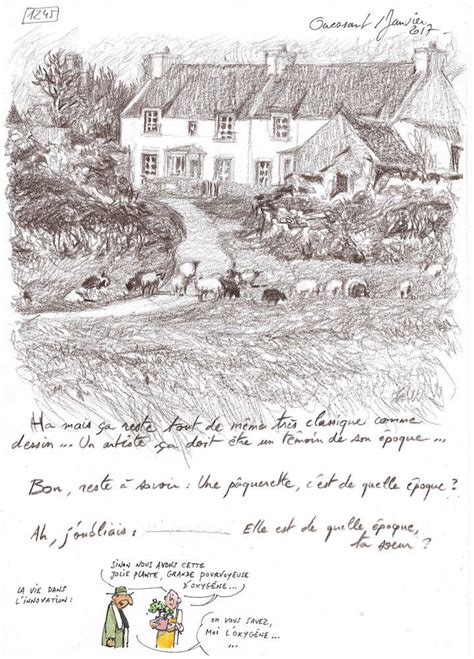 1245
Ouessant / Janvier
2017
Ha mais ça reste tout de même très classique comme
dessin ... Un artiste ça doit être un témoin de son époque ...
Bon, reste à savoir : Une pâquerette, c'est de quelle époque ?
Ah, j'oubliais : Elle est de quelle époque,
ta soeur ?
LA VIE DANS
L'INNOVATION :
SINON NOUS AVONS CETTE
JOLIE PLANTE, GRANDE POURVOYEUSE
D'OXYGÈNE...
OH VOUS SAVEZ,
MOI L'OXYGÈNE ...